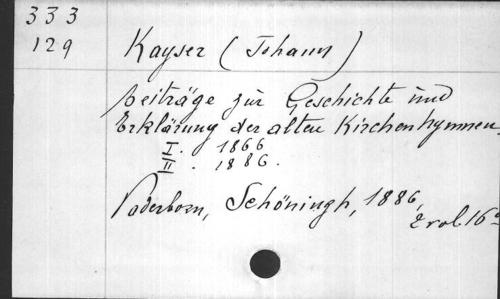 333
129
Kayser (Johann)
Beiträge zur Geschichte und
Erklärung der alten Kirchenhymnen.
I. 1866
II. 1886.
Paderborn, Schöningh, 1886,
2 vol. 16°